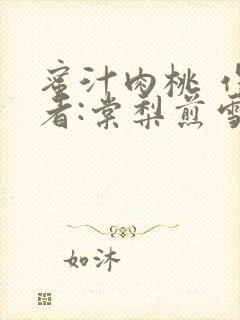 蜜汁肉桃 作
者:棠梨煎雪
如沐